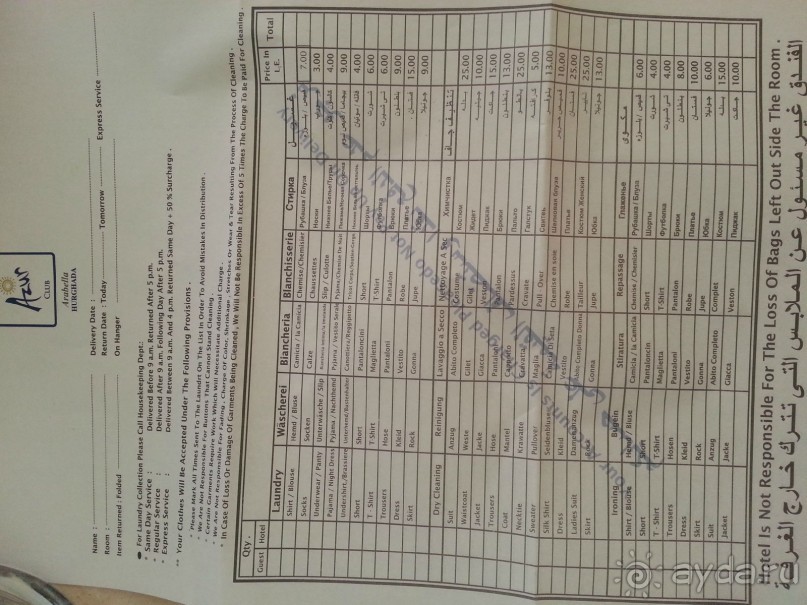 Azur
CLUB
Arabella
HURGHADA
Name : Delivery Date :
Room : Return Date : Today Tomorrow Express Service
Item Returned : Folded On Hanger
For Laundry Collection Please Call Housekeeping Dept:
* Same Day Service : Delivered Before 9 a.m. Returned After 5 p.m.
* Regular Service : Delivered After 9 a.m. Following Day After 5 p.m.
* Express Service : Delivered Between 9 a.m. And 4 p.m. Returned Same Day + 50 % Surcharge .
** Your Clothes Will Be Accepted Under The Following Provisions .
* Please Mark All Times Sent To The Laundry On The List In Order To Avoid Mistakes In Distribution .
* We Are Not Responsible For Buttons That Cannot Stand Cleaning .
* Certain Garments Require Work Which Will Necessitate Additional Charge .
* We Are Not Responsible For Fading , Change Of Color, Shrinkage , Stretches Or Wear & Tear Resulting From The Process Of Cleaning .
* In Case Of Loss Or Damage Of Garments Being Cleaned , We Will Not Be Responsible In Excess Of 5 Times The Charge To Be Paid For Cleaning .
Qty . Price In Total
Guest Hotel Laundry Wäscherei Biancheria Blanchisserie Стирка غسيل L.E.
Shirt / Blouse Hemd / Bluse Camicia / la Camicia Chemise/Chemisier Рубашка / Блуза 7.00
Socks Socken Calze Chaussettes Носки 3.00
Underwear / Panty Unterwäsche / Slip Slip / Culotte 4.00
Pajama / Night Dress Pyjama / Nachthemd 9.00
Undershirt/Brassiere 4.00
Short Short Pantaloncini Short Шорты 6.00
T - Shirt T-Shirt Maglietta T-Shirt Футболка 6.00
Trousers Hose Pantaloni Pantalon Брюки 9.00
Dress Kleid Vestito Robe Платье 15.00
Skirt Rock Gonna Jupe 9.00
Dry Cleaning Reinigung Lavaggio a Secco Nettoyage A Sec Химчистка تنظيف جاف
Suit Anzug Abito Completo Costume Костюм 25.00
Waistcoat Weste Gilet Gilet Жилет 10.00
Jacket Jacke Giacca Veston Пиджак 15.00
Trousers Hose Pantaloni Pantalon Брюки 13.00
Coat Mantel Cappotto Pardessus Пальто 25.00
Necktie Krawatte Cravatta Cravate Галстук 5.00
Sweater Pullover Maglia Pull Over Свитер 13.00
Silk Shirt Seidenbluse Camicia Di Seta Chemise en soie Шелковая блуза 10.00
Dress Kleid Vestito Robe Платье 25.00
Ladies Suit Abito Completo Donna Tailleur Костюм Женский 25.00
Skirt Gonna Jupe Юбка 13.00
Ironing Bügeln Stiratura Repassage Глаженье مكوى
Shirt / Blouse Hemd / Bluse Camicia / la Camicia Chemise / Chemisier Рубашка / Блуза 6.00
Short Short Pantaloncin Short Шорты 4.00
T - Shirt T-Shirt Maglietta T-Shirt Футболка 4.00
Trousers Hosen Pantaloni Pantalon Брюки 8.00
Dress Kleid Vestito Robe Платье 10.00
Skirt Rock Gonna Jupe Юбка 6.00
Suit Anzug Abito Completo Complet Костюм 15.00
Jacket Jacke Giacca Veston Пиджак 10.00
Hotel Is Not Responsible For The Loss Of Bags Left Out Side The Room .
الفندق غير مسئول عن الملابس التى تترك خارج الغرفة
ayda.ru